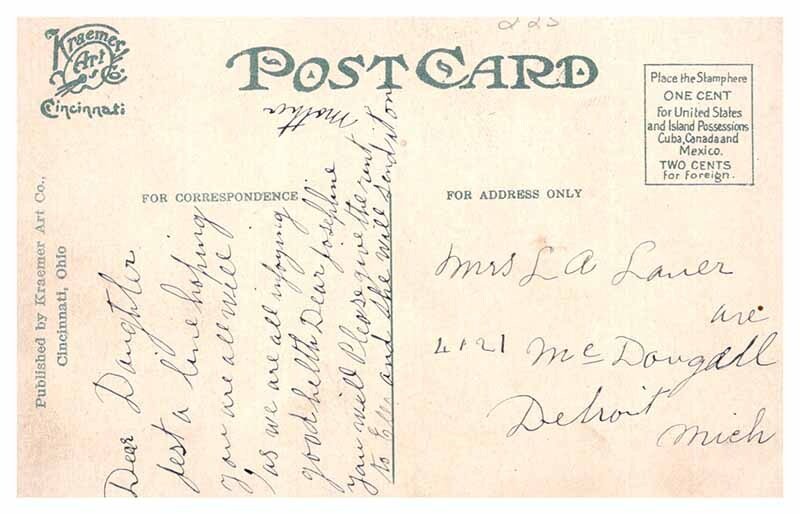 225
Kraemer
Art
& Co.
Cincinnati
POST CARD
Place the Stamp here
ONE CENT
for United States
and Island Possessions
Cuba, Canada and
Mexico.
TWO CENTS
for foreign.
Published by Kraemer Art Co.,
Cincinnati, Ohio
FOR CORRESPONDENCE
Dear Daughter
jest a line hoping
you are all well
as we are all injoying
good helth Dear Josephine
you will Please give the rent
to Ella and she will send it on
Mother
FOR ADDRESS ONLY
Mrs L A Lauer
ave
4121 McDougall
Detroit
Mich